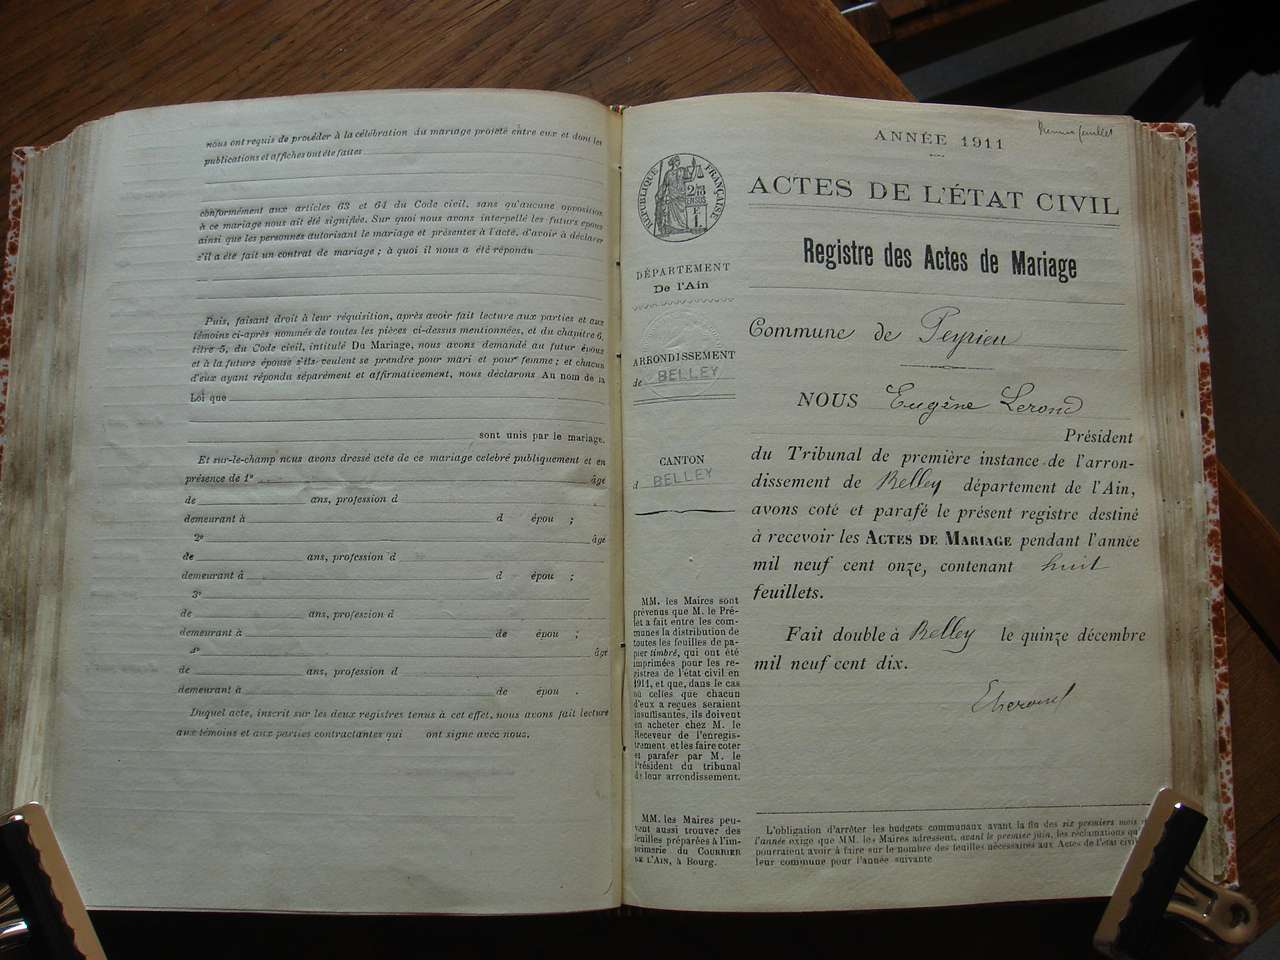 nous ont requis de procéder à la célébration du mariage projeté entre eux et dont les
publications et affiches ont été faites
conformément aux articles 63 et 64 du Code civil, sans qu'aucune opposition
à ce mariage nous ait été signifiée. Sur quoi nous avons interpellé les futurs époux
ainsi que les personnes autorisant le mariage et présentes à l'acte, d'avoir à déclarer
s'il a été fait un contrat de mariage ; à quoi il nous a été répondu
Puis, faisant droit à leur réquisition, après avoir fait lecture aux parties et aux
témoins ci-après nommés de toutes les pièces ci-dessus mentionnées, et du chapitre 6,
titre 5, du Code civil, intitulé Du Mariage, nous avons demandé au futur époux
et à la future épouse s'ils veulent se prendre pour mari et pour femme ; et chacun
d'eux ayant répondu séparément et affirmativement, nous déclarons Au nom de la
Loi que
sont unis par le mariage.
Et sur-le-champ nous avons dressé acte de ce mariage celebré publiquement et en
présence de 1° âgé
de ans, profession d
demeurant à d épou ;
2° âgé
de ans, profession d
demeurant à d épou ;
3°
de ans, profession d
demeurant à de épou ;
4° âgé
de ans, profession d
demeurant à de épou .
Duquel acte, inscrit sur les deux registres tenus à cet effet, nous avons fait lecture
aux témoins et aux parties contractantes qui ont signé avec nous.
Premier feuillet
ANNÉE 1911
RÉPUBLIQUE FRANÇAISE
ACTES DE L'ÉTAT CIVIL
Registre des Actes de Mariage
DÉPARTEMENT
De l'Ain
ARRONDISSEMENT
de BELLEY
CANTON
d BELLEY
Commune de Peyrieu
NOUS Eugène Lerond
Président
du Tribunal de première instance de l'arron-
dissement de Belley département de l'Ain,
avons coté et parafé le présent registre destiné
à recevoir les ACTES DE MARIAGE pendant l'année
mil neuf cent onze, contenant huit
feuillets.
Fait double à Belley le quinze décembre
mil neuf cent dix.
MM. les Maires sont
prévenus que M. le Pré-
fet a fait entre les com-
munes la distribution de
toutes les feuilles de pa-
pier timbré, qui ont été
imprimées pour les re-
gistres de l'état civil en
1911, et que, dans le cas
où celles que chacun
d'eux a reçues seraient
insuffisantes, ils doivent
en acheter chez M. le
Receveur de l'enregis-
trement, et les faire coter
et parafer par M. le
Président du tribunal
de leur arrondissement.
MM. les Maires peu-
vent aussi trouver des
feuilles préparées à l'im-
primerie du COURRIER
DE L'AIN, à Bourg.
L'obligation d'arrêter les budgets communaux avant la fin des six premiers mois
l'année exige que MM. les Maires adressent, avant le premier juin, les réclamations
pourraient avoir à faire sur le nombre des feuilles nécessaires aux Actes de l'état
leur commune pour l'année suivante